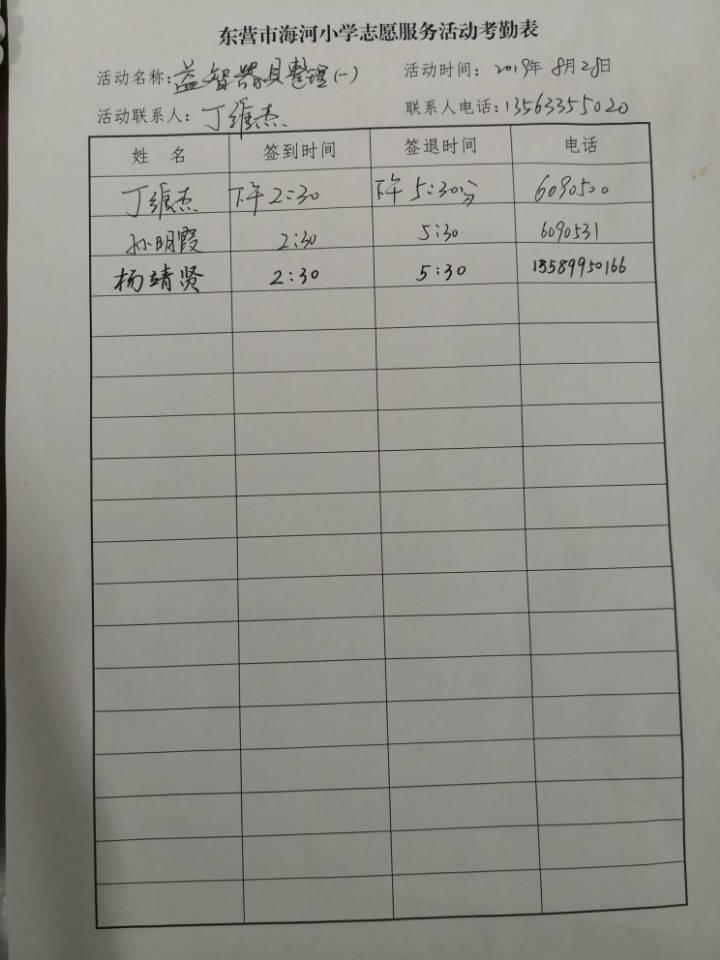 东营市海河小学志愿服务活动考勤表
活动名称:益智器具整理(一) 活动时间:2019年8月28日
活动联系人:丁维杰 联系人电话:13563355020
姓 名 签到时间 签退时间 电话
丁维杰 下午2:30 下午5:30分 6090500
孙明霞 2:30 5:30 6090531
杨靖贤 2:30 5:30 13589950166